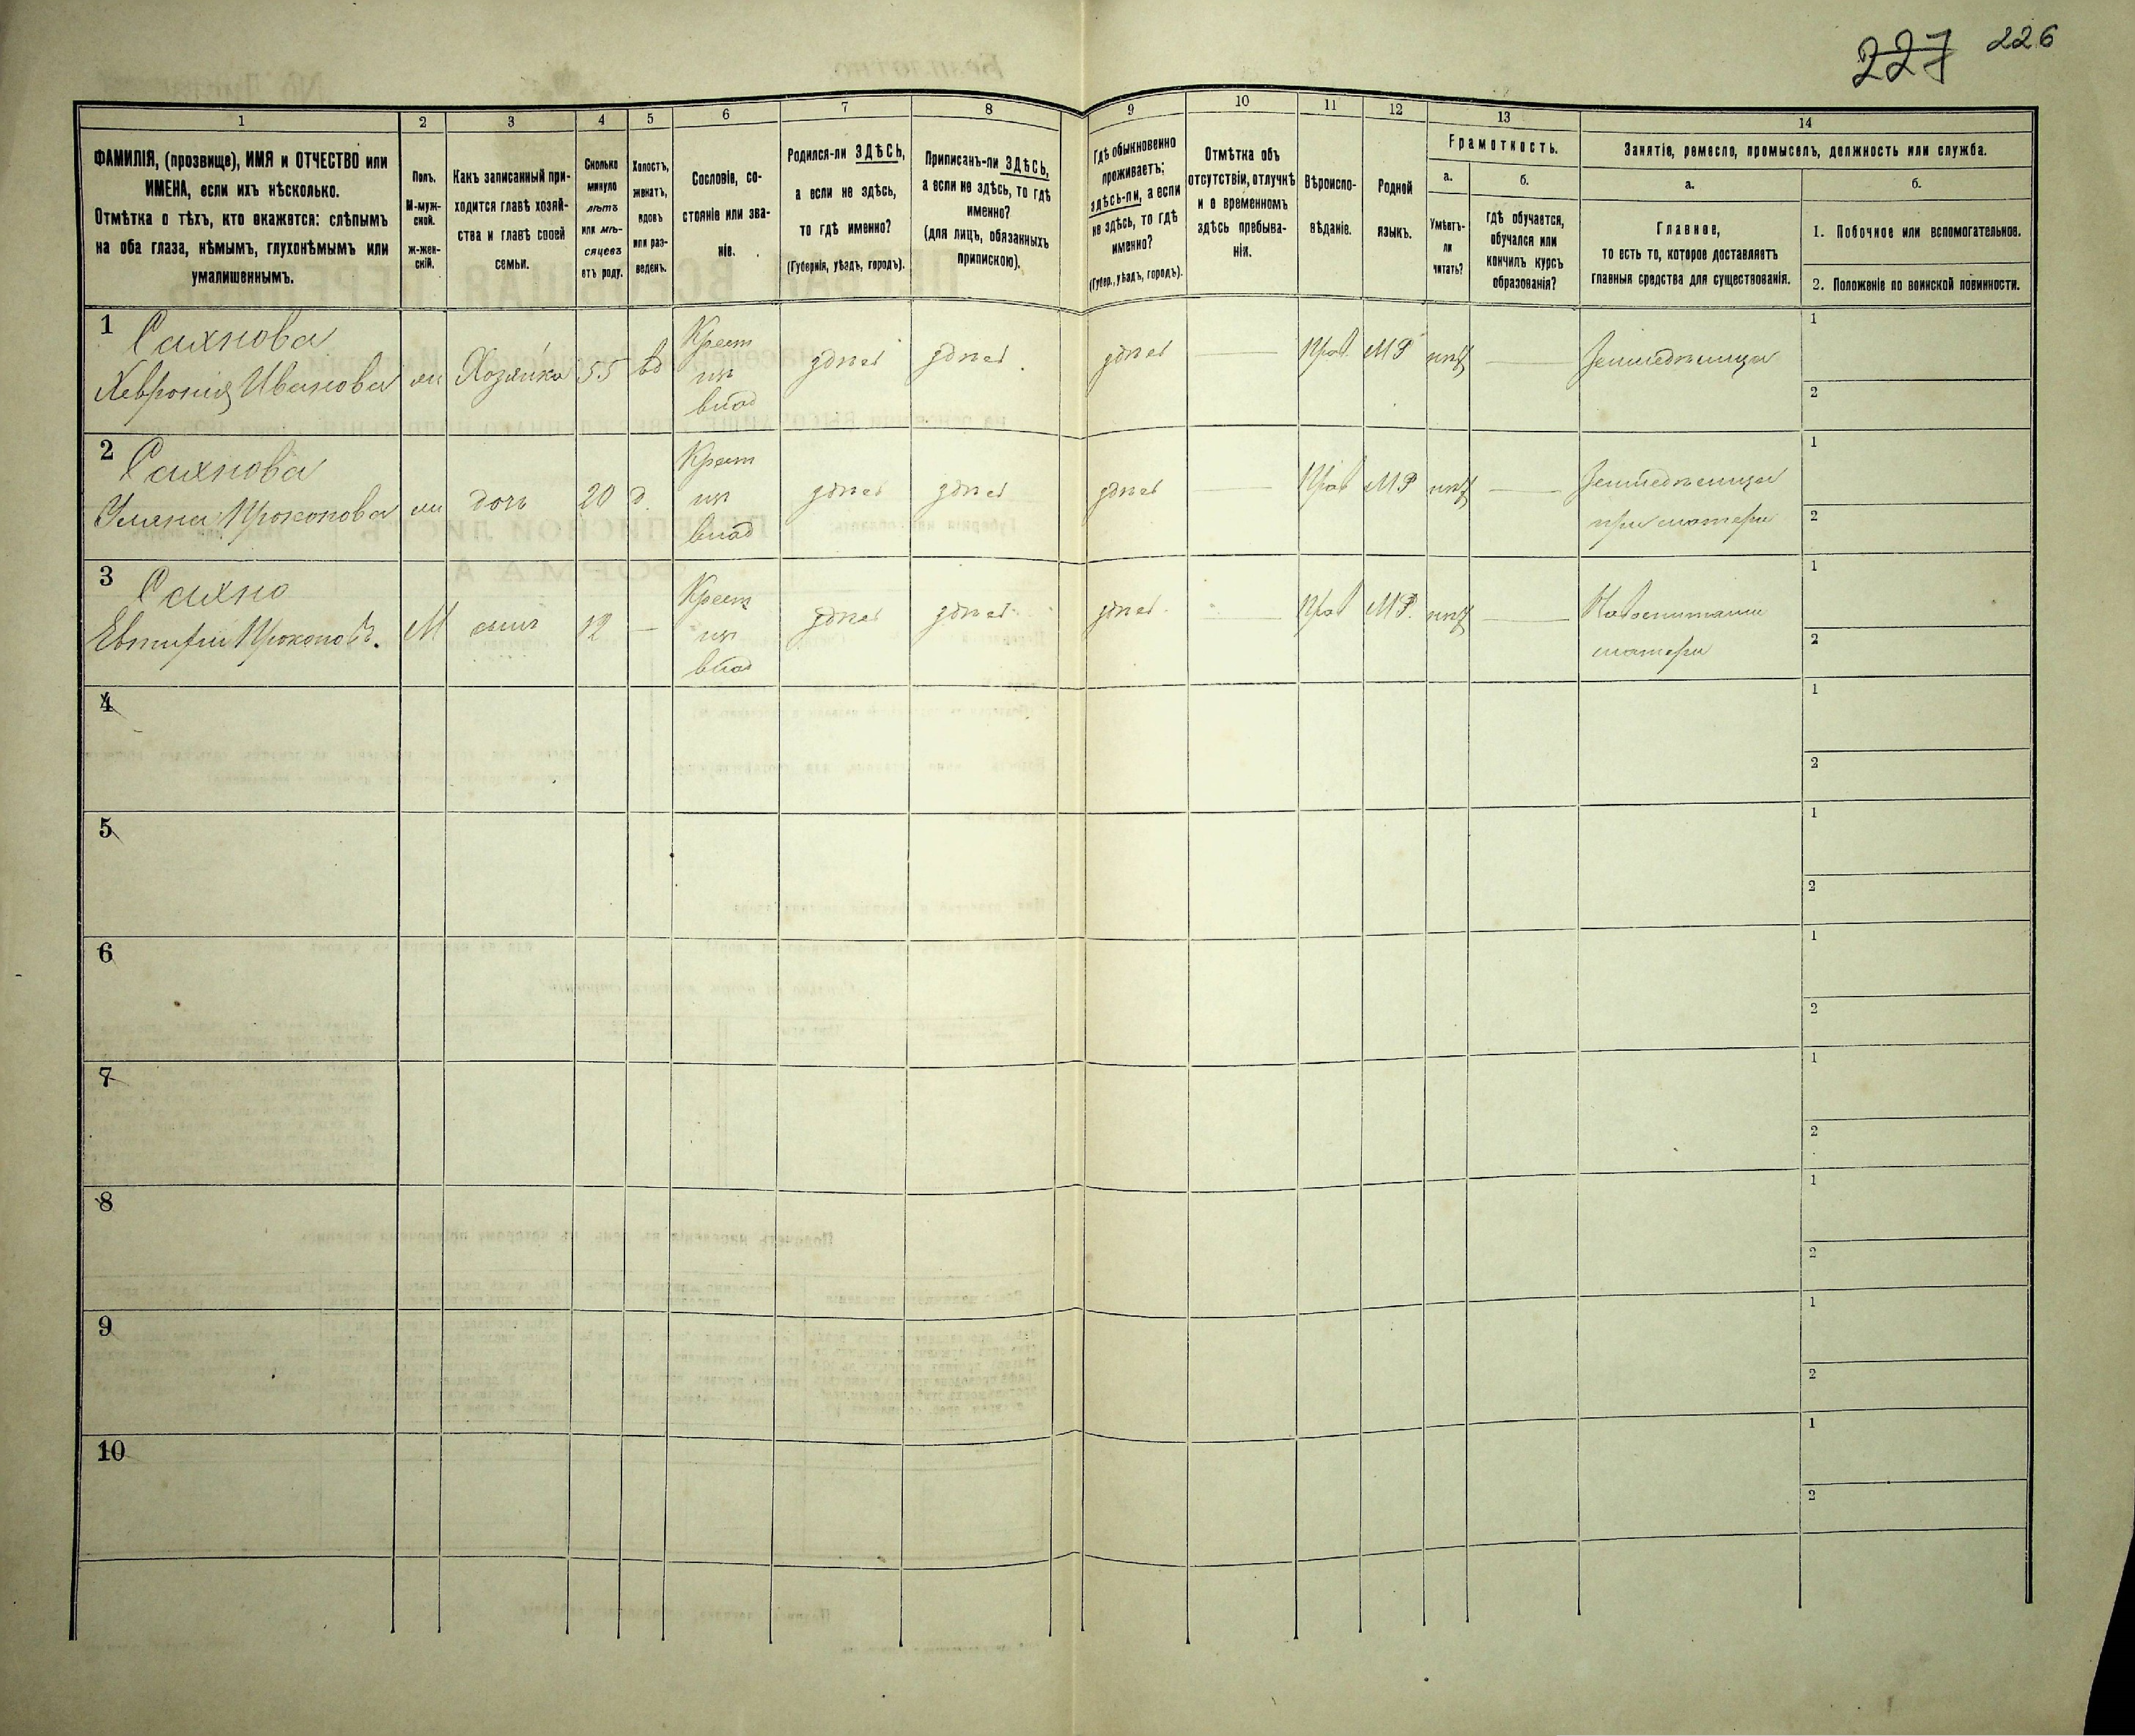 227 226
1 2 3 4 5 6 7 8 9 10 11 12 13 14
ФАМИЛІЯ, (прозвище), ИМЯ и ОТЧЕСТВО или
ИМЕНА, если ихъ нѣсколько.
Отмѣтка о тѣхъ, кто окажется: слѣпымъ
на оба глаза, нѣмымъ, глухонѣмымъ или
умалишеннымъ.
Полъ.
М-муж-
ской.
ж-жен-
скій.
Какъ записанный при-
ходится главѣ хозяй-
ства и главѣ своей
семьи.
Сколько
минуло
лѣтъ
или мѣ-
сяцевъ
отъ роду.
Холостъ,
женатъ,
вдовъ
или раз-
веденъ.
Сословіе, со-
стояніе или зва-
ніе.
Родился-ли ЗДѢСЬ,
а если не здѣсь,
то гдѣ именно?
(Губернія, уѣздъ, городъ).
Приписанъ-ли ЗДѢСЬ,
а если не здѣсь, то гдѣ
именно?
(для лицъ, обязанныхъ
припискою).
Гдѣ обыкновенно
проживаетъ:
здѣсь-ли, а если
не здѣсь, то гдѣ
именно?
(Губер., уѣздъ, городъ).
Отмѣтка объ
отсутствіи, отлучкѣ
и о временномъ
здѣсь пребыва-
ніи.
Вѣроиспо-
вѣданіе.
Родной
языкъ.
Грамотность.
а.
Умѣетъ-
ли
читать?
б.
гдѣ обучается,
обучался или
кончилъ курсъ
образованія?
Занятіе, ремесло, промыселъ, должность или служба.
а.
Главное,
то есть то, которое доставляетъ
главныя средства для существованія.
б.
1. Побочное или вспомогательное.
2. Положеніе по воинской повинности.
1 Сахнова
Хевронія Иванова
Хозяйка 55 вд
Крест
из
влад
здѣсь здѣсь здѣсь Прав. МР нѣт
Земледѣлица
1
2
2 Сахнова
Уляна Прокопова
дочь 20 д.
Крест
из
влад
здѣсь здѣсь здѣсь Прав МР нѣт
Земледѣлица
при матери
1
2
3 Сахно
Евтифи Прокоповъ.
М сынъ 12 —
Крест
из
влад
здѣсь здѣсь здѣсь Прав МР. нѣт
На воспитании
матери
1
2
4
1
2
5
1
2
6
1
2
7
1
2
8
1
2
9
1
2
10
1
2